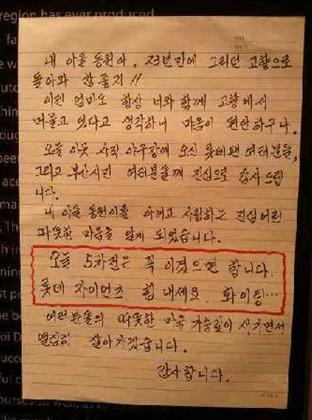 내 아들 동원아, 23년만에 그리던 고향으로
돌아와 참 좋지!!
이젠 엄마도 항상 너와 함께 고향에서
머물고 있다고 생각하니 마음이 편안하구나.
오늘 이곳 사직 야구장에 오신 롯데팬 여러분들,
그리고 부산시민 여러분들께 진심으로 감사드립
니다.
내 아들 동원이를 아끼고 사랑하는 진심어린
따뜻한 마음을 알게 되었습니다.
오늘 5차전은 꼭 이겼으면 합니다.
롯데 자이언츠 힘내세요. 화이팅…
여러분들의 따뜻한 마음 가슴깊이 새기면서
열심히 살아가겠습니다.
감사합니다.
region has ever produced